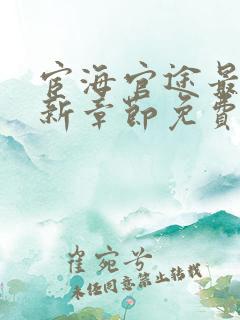 宦海官途最
新章節免費
崔宛兮
未经同意禁止转载